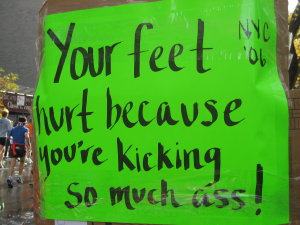 Your feet
NYC
'06
hurt because
you're kicking
so much ass!